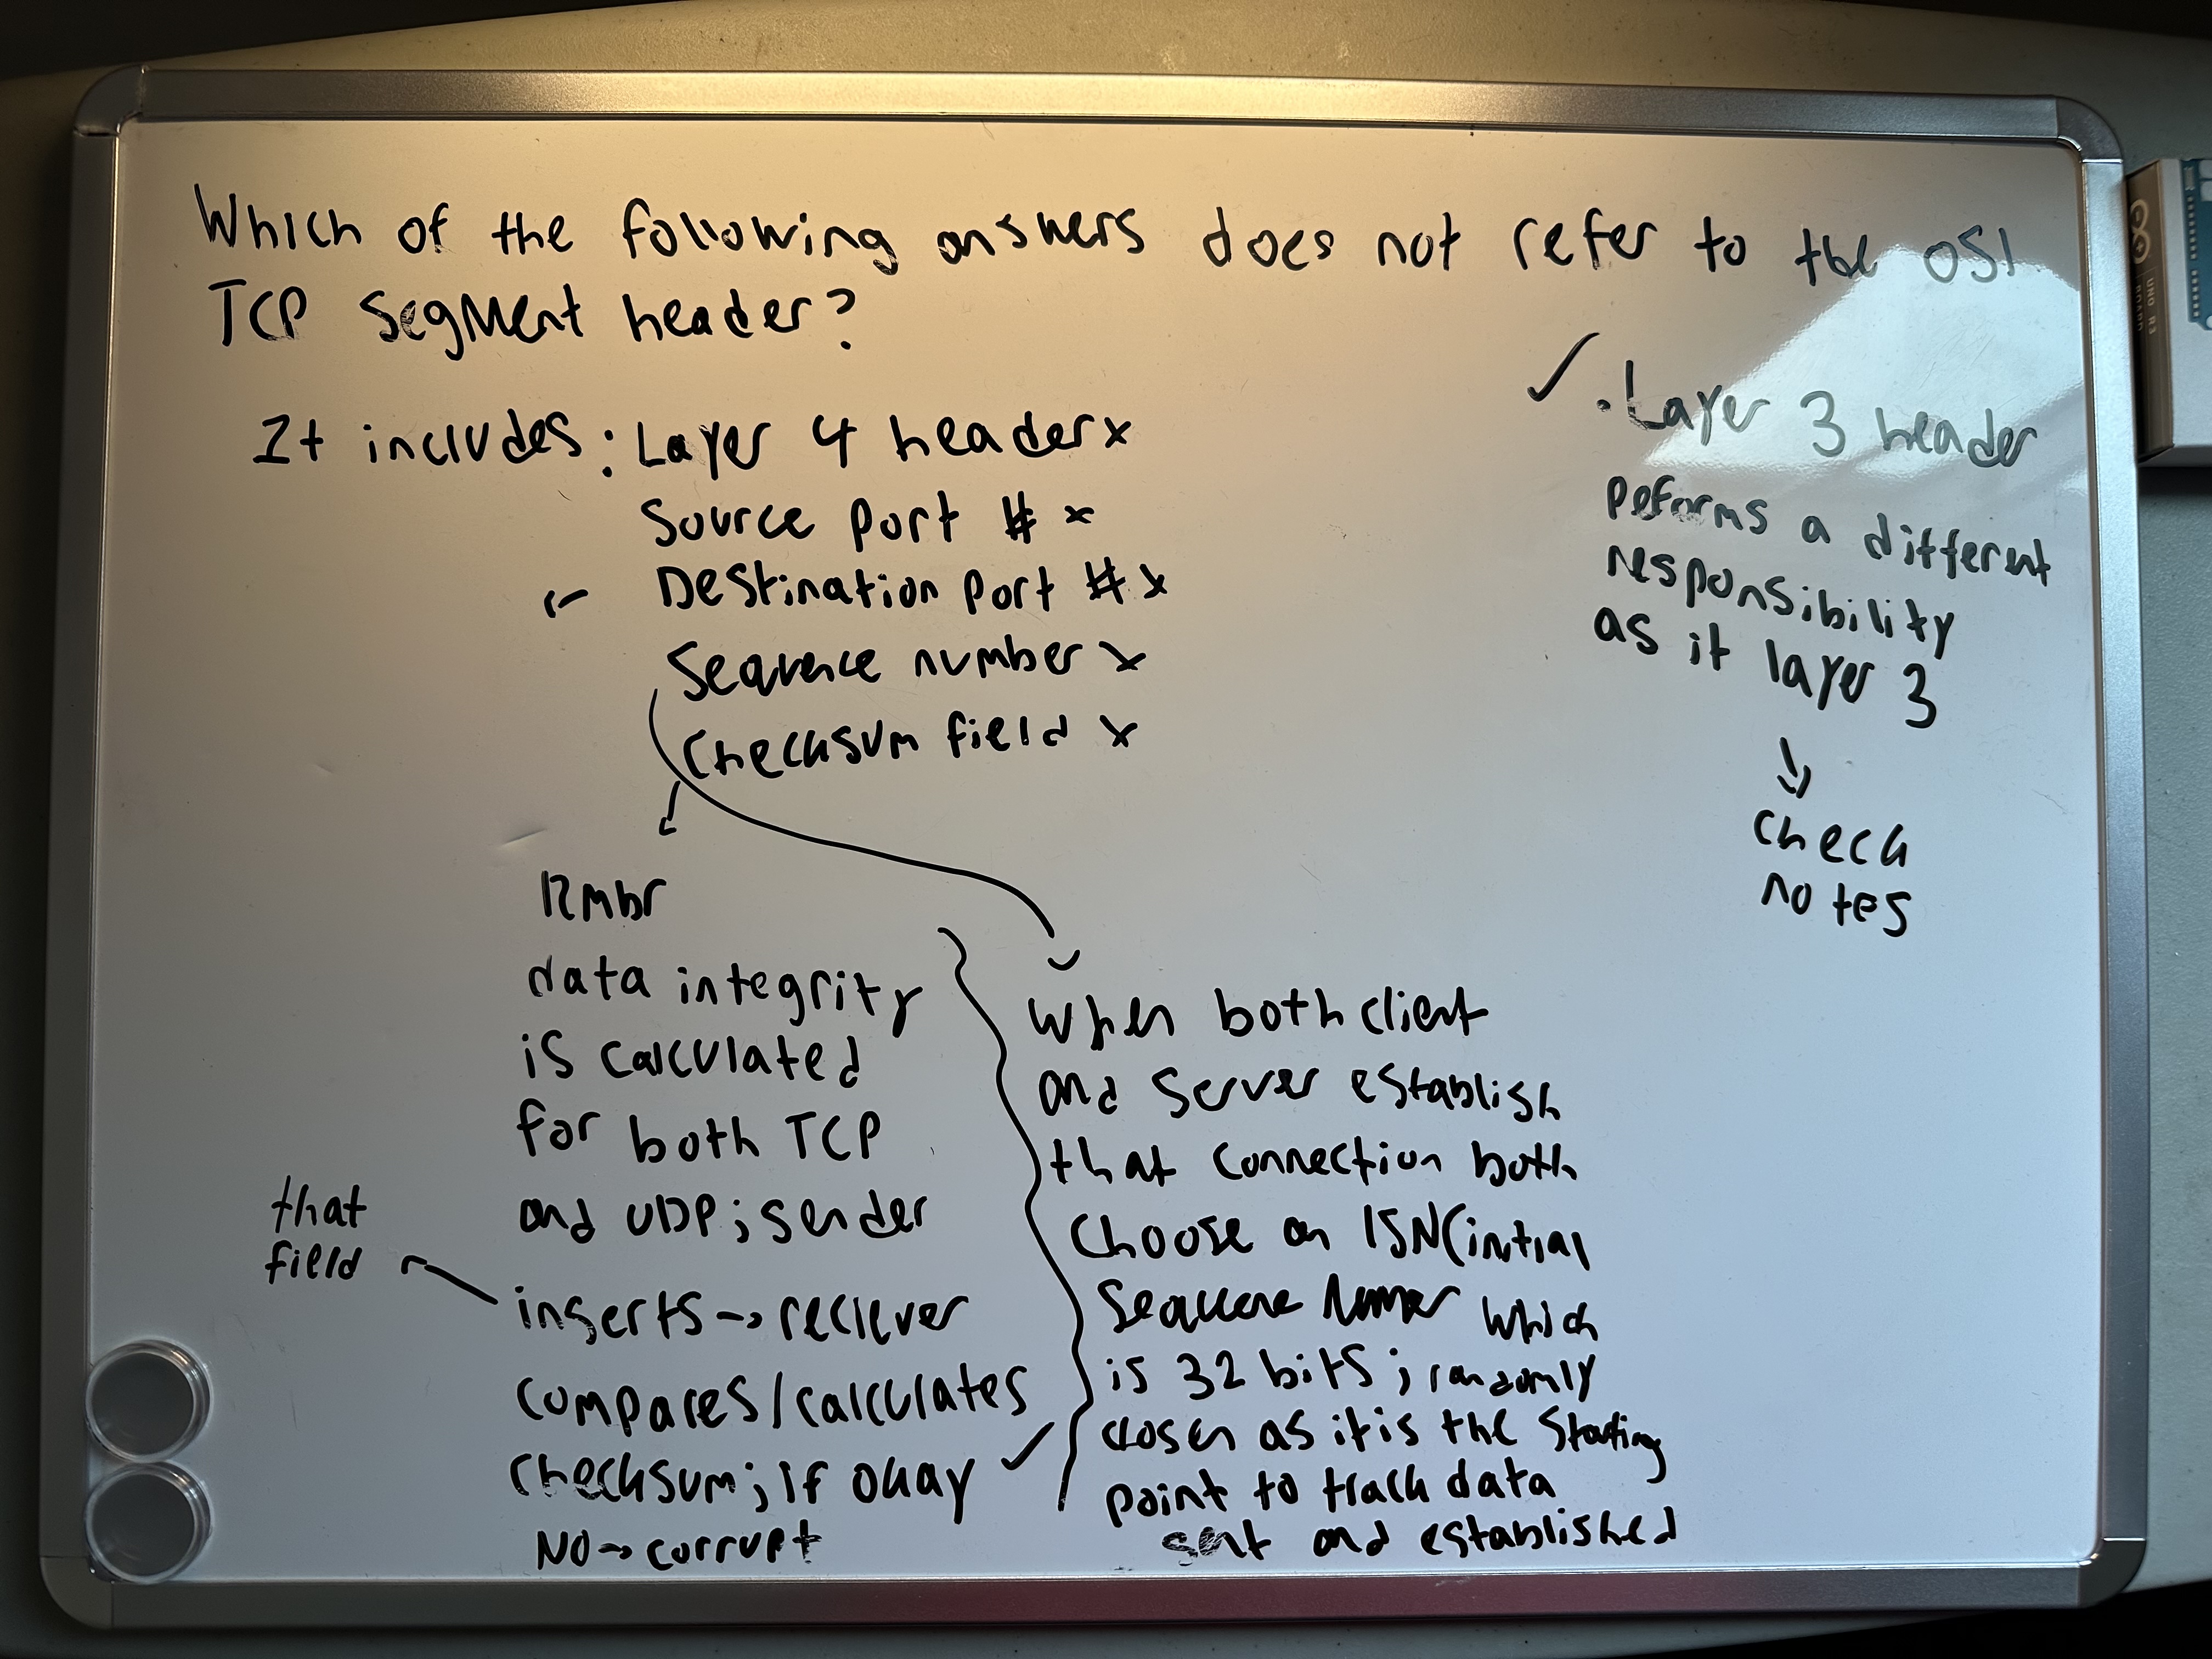 Which of the following answers does not refer to the OSI
TCP Segment header?
It includes: Layer 4 header x
Source port # x
Destination port # x
Sequence number x
Checksum field x
✓ . Layer 3 header
peforms a different
responsibility
as it layer 3
↓
check
notes
Rmbr
data integrity
is calculated
for both TCP
and UDP; sender
that
field
inserts → reciever
compares/calculates
checksum; if okay ✓
NO → corrupt
when both client
and server establish
that connection both
choose an ISN (initial
which
is 32 bits; randomly
chosen as it is the starting
point to track data
sent and established
UNO R3